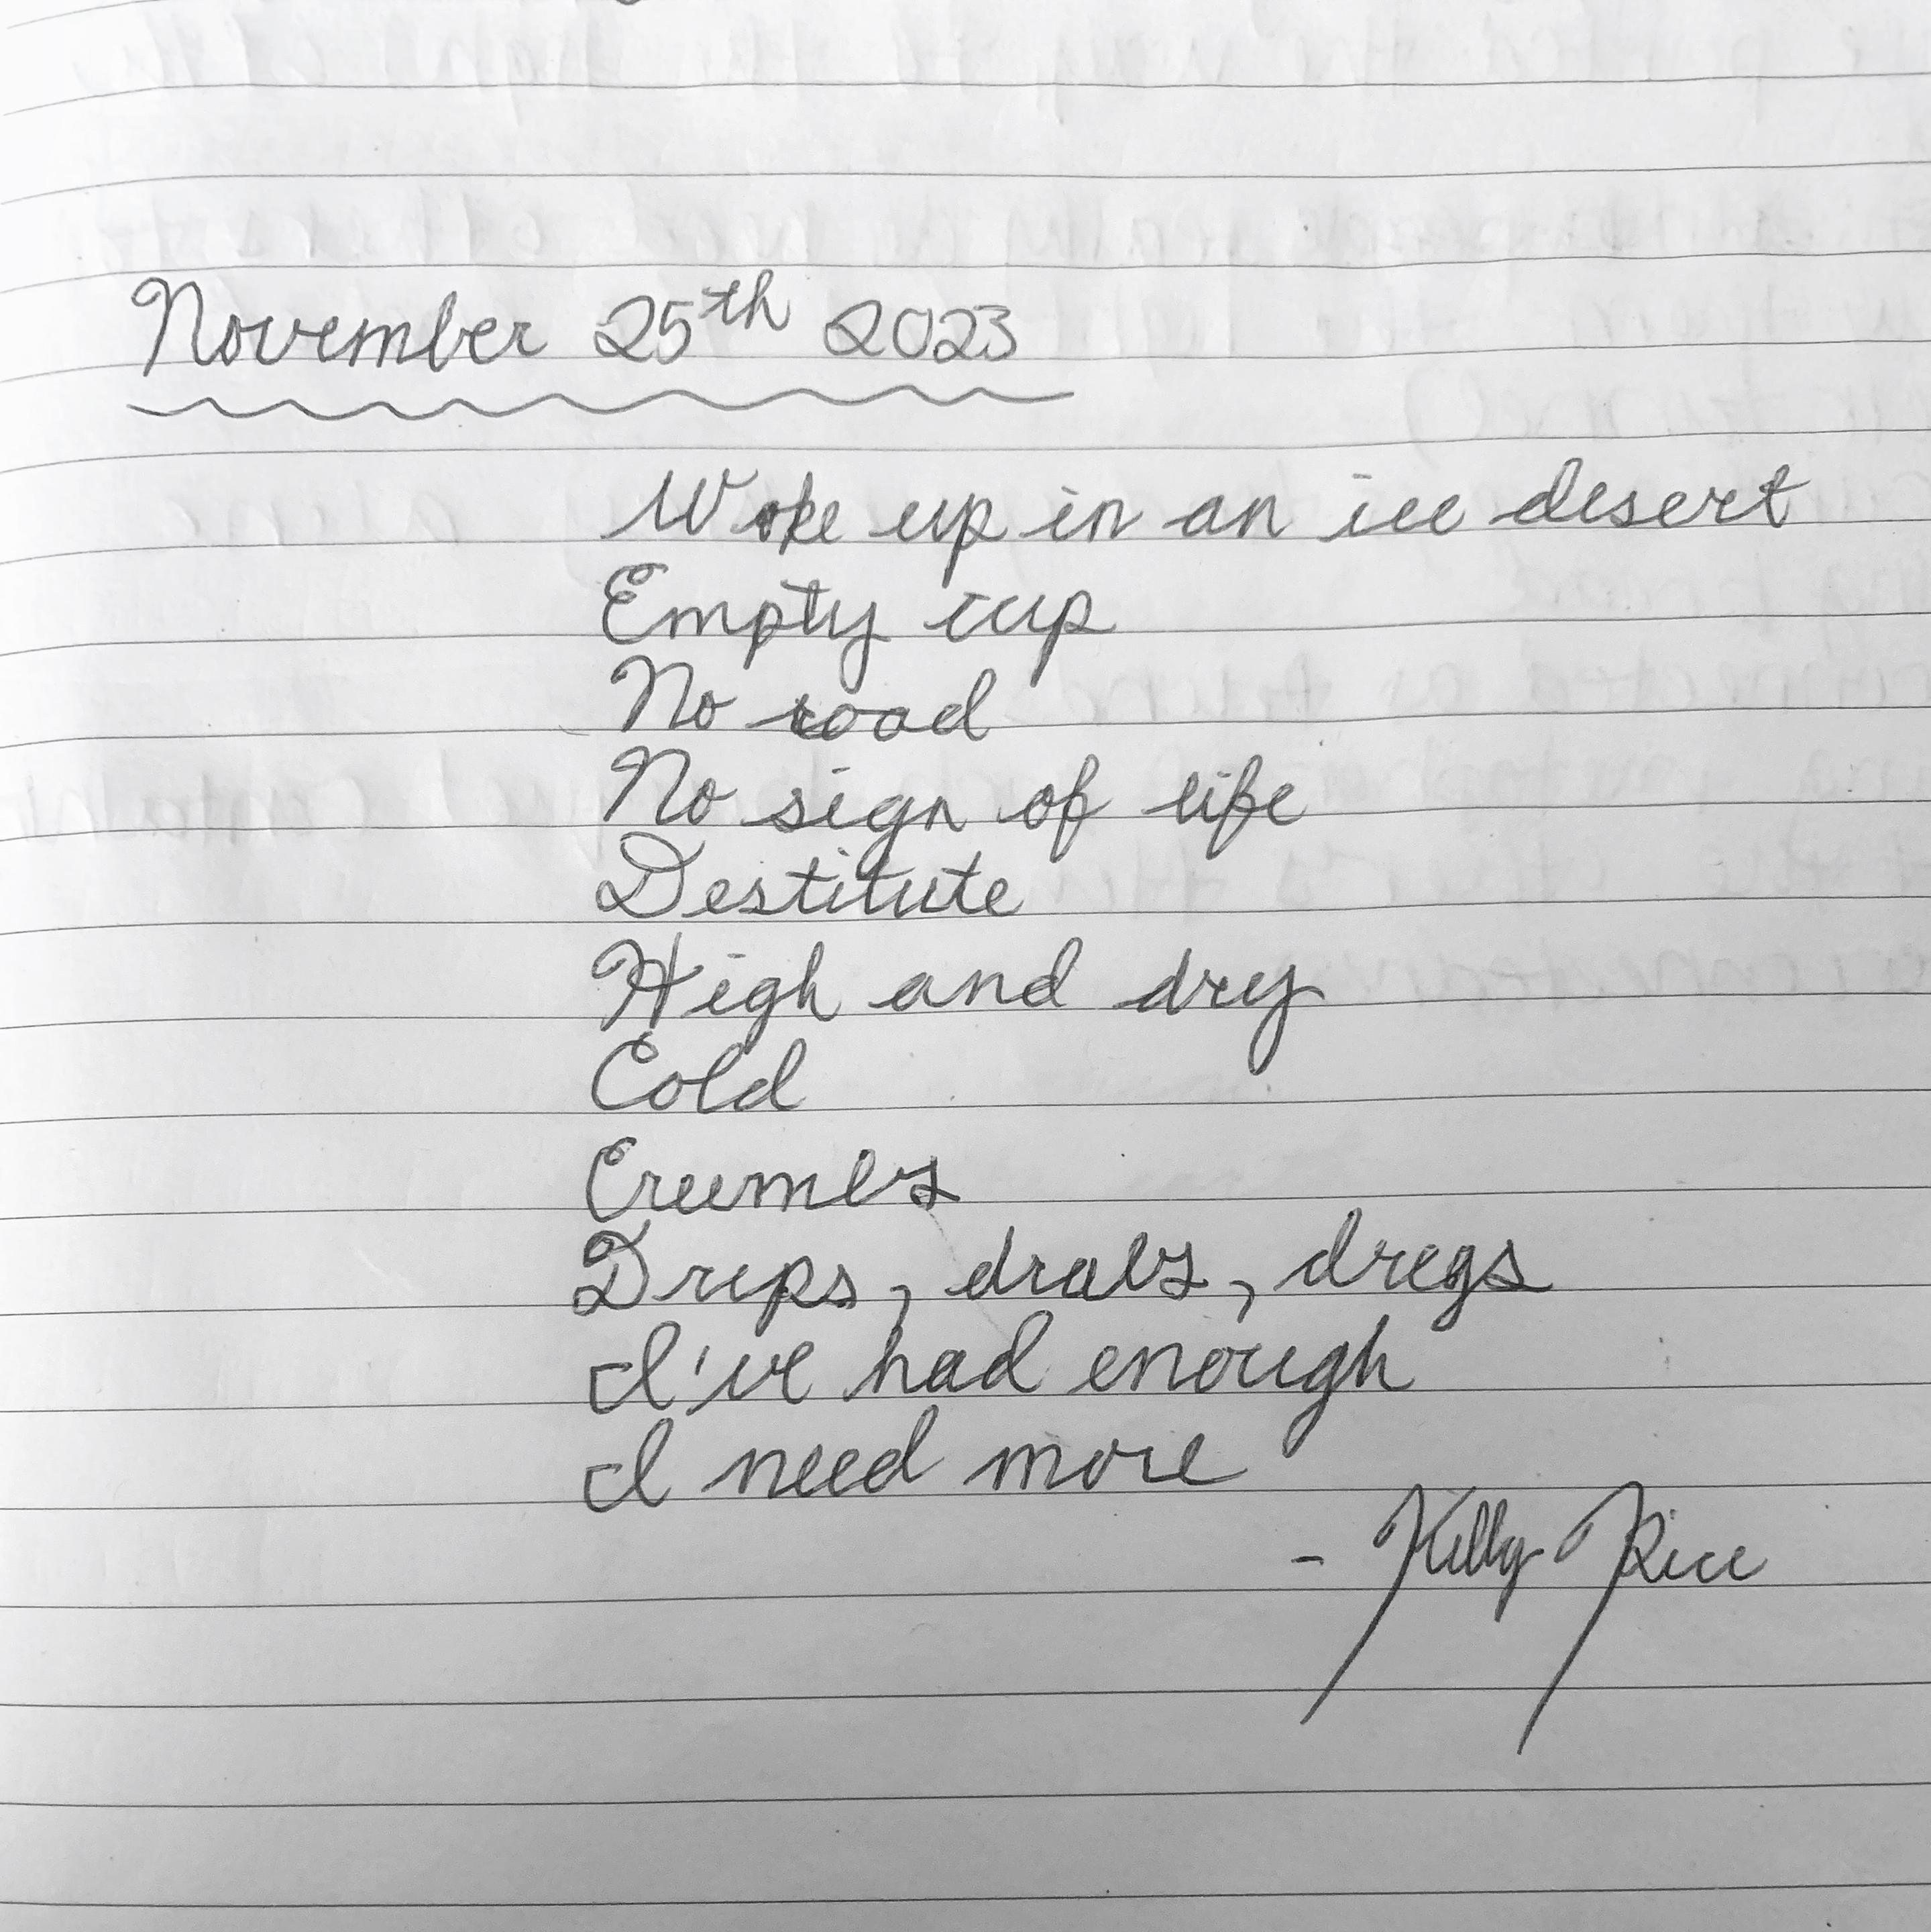 November 25th 2023
Woke up in an ice desert
Empty cup
No road
No sign of life
Destitute
High and dry
Cold
Crumbs
Drips, drabs, dregs
I've had enough
I need more
- Kelly Rice